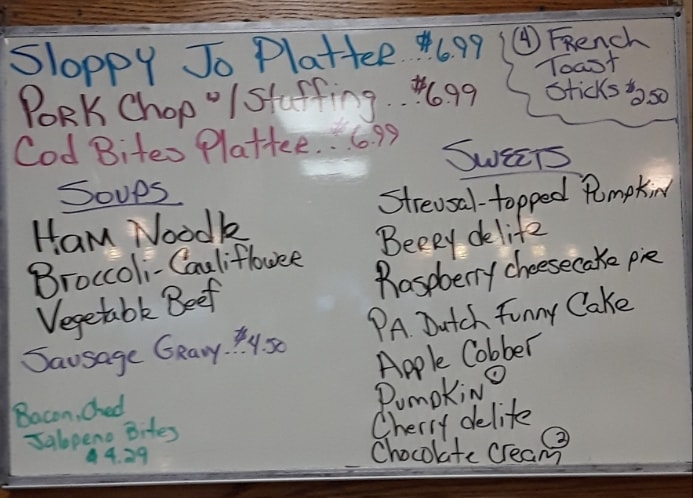 Sloppy Jo Platter...$6.99
Pork Chop w/Stuffing...$6.99
Cod Bites Platter...$6.99
(4) French
Toast
Sticks $2.50
Soups
Ham Noodle
Broccoli-Cauliflower
Vegetable Beef
Sausage Gravy...$4.50
Bacon, Ched
Jalopeno Bites
$4.29
Sweets
Streusal-topped Pumpkin
Berry delite
Raspberry cheesecake pie
PA. Dutch Funny Cake
Apple Cobber
Pumpkin (1)
Cherry delite
Chocolate Cream (2)